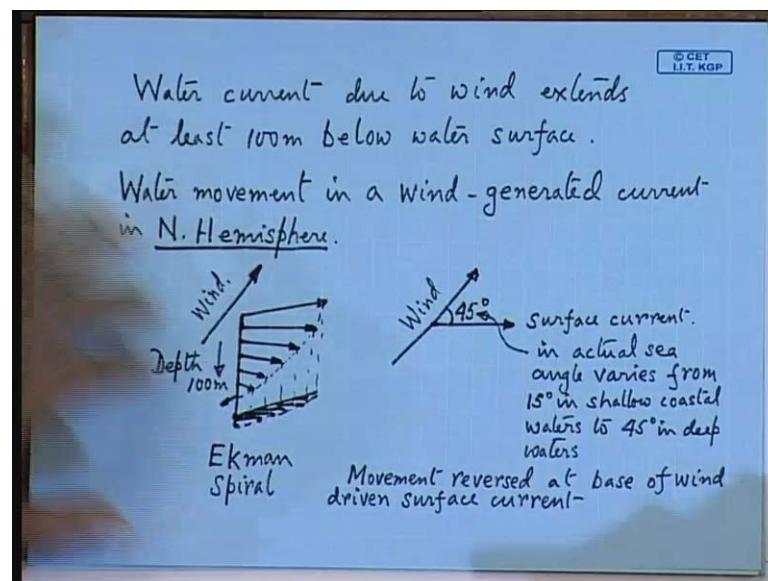 © CET
I.I.T. KGP
Water current due to wind extends
at least 100m below water surface.
Water movement in a wind-generated current
in N. Hemisphere.
Wind.
Depth
100m
Ekman
Spiral
Wind
45°
Surface current.
in actual sea
angle varies from
15° in shallow coastal
waters to 45° in deep
waters
Movement reversed at base of wind
driven surface current